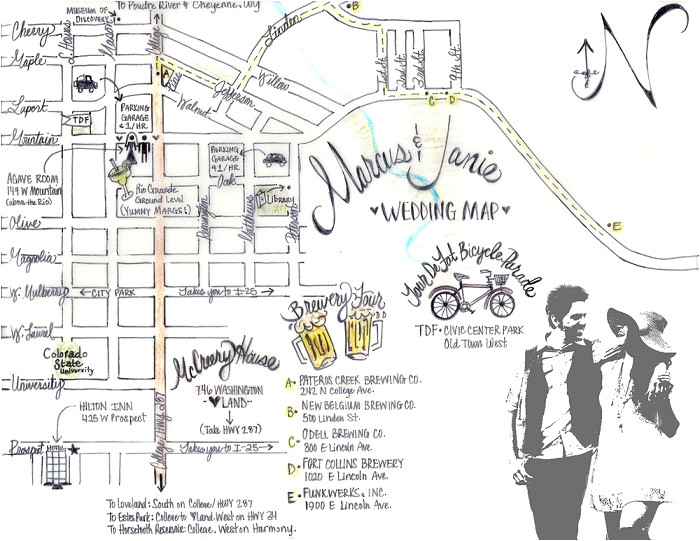 To Poudre River & Cheyenne, WY
MUSEUM OF
DISCOVERY
Cherry
Maple
Laport
Mountain
Olive
Magnolia
W. Mulberry
W. Laurel
University
Prospect
Howes
Mason
College
Pine
Linden
Willow
Jefferson
Walnut
1st St.
2nd St.
3rd St.
9th St.
A
B
C D
E
N
PARKING
GARAGE
$1/HR
TDF
AGAVE ROOM
149 W Mountain
(above the Rio)
Rio Grande
Ground Level
(YUMMY MARGS!)
PARKING
GARAGE
$1/HR.
Oak
Library
Remington
Matthews
Peterson
Marcus & Janie
WEDDING MAP
← CITY PARK
Takes you to I-25 →
Tour De Fat Bicycle Parade
TDF • CIVIC CENTER PARK
Old Town West
Brewery Tour
A• PATEROS CREEK BREWING CO.
242 N College Ave.
B• NEW BELGIUM BREWING CO.
500 Linden St.
C• ODELL BREWING CO.
800 E Lincoln Ave.
D• FORT COLLINS BREWERY
1020 E Lincoln Ave.
E• FUNKWERKS, INC.
1900 E Lincoln Ave.
McCreery House
746 WASHINGTON
♥LAND
(Take HWY 287)
Colorado
State
University
HILTON INN
425 W Prospect
HOTEL
College/HWY 287
Takes you to I-25 →
To Loveland: South on College/HWY 287
To Estes Park: College to ♥Land. West on HWY 34
To Horsetooth Reservoir: College, West on Harmony.